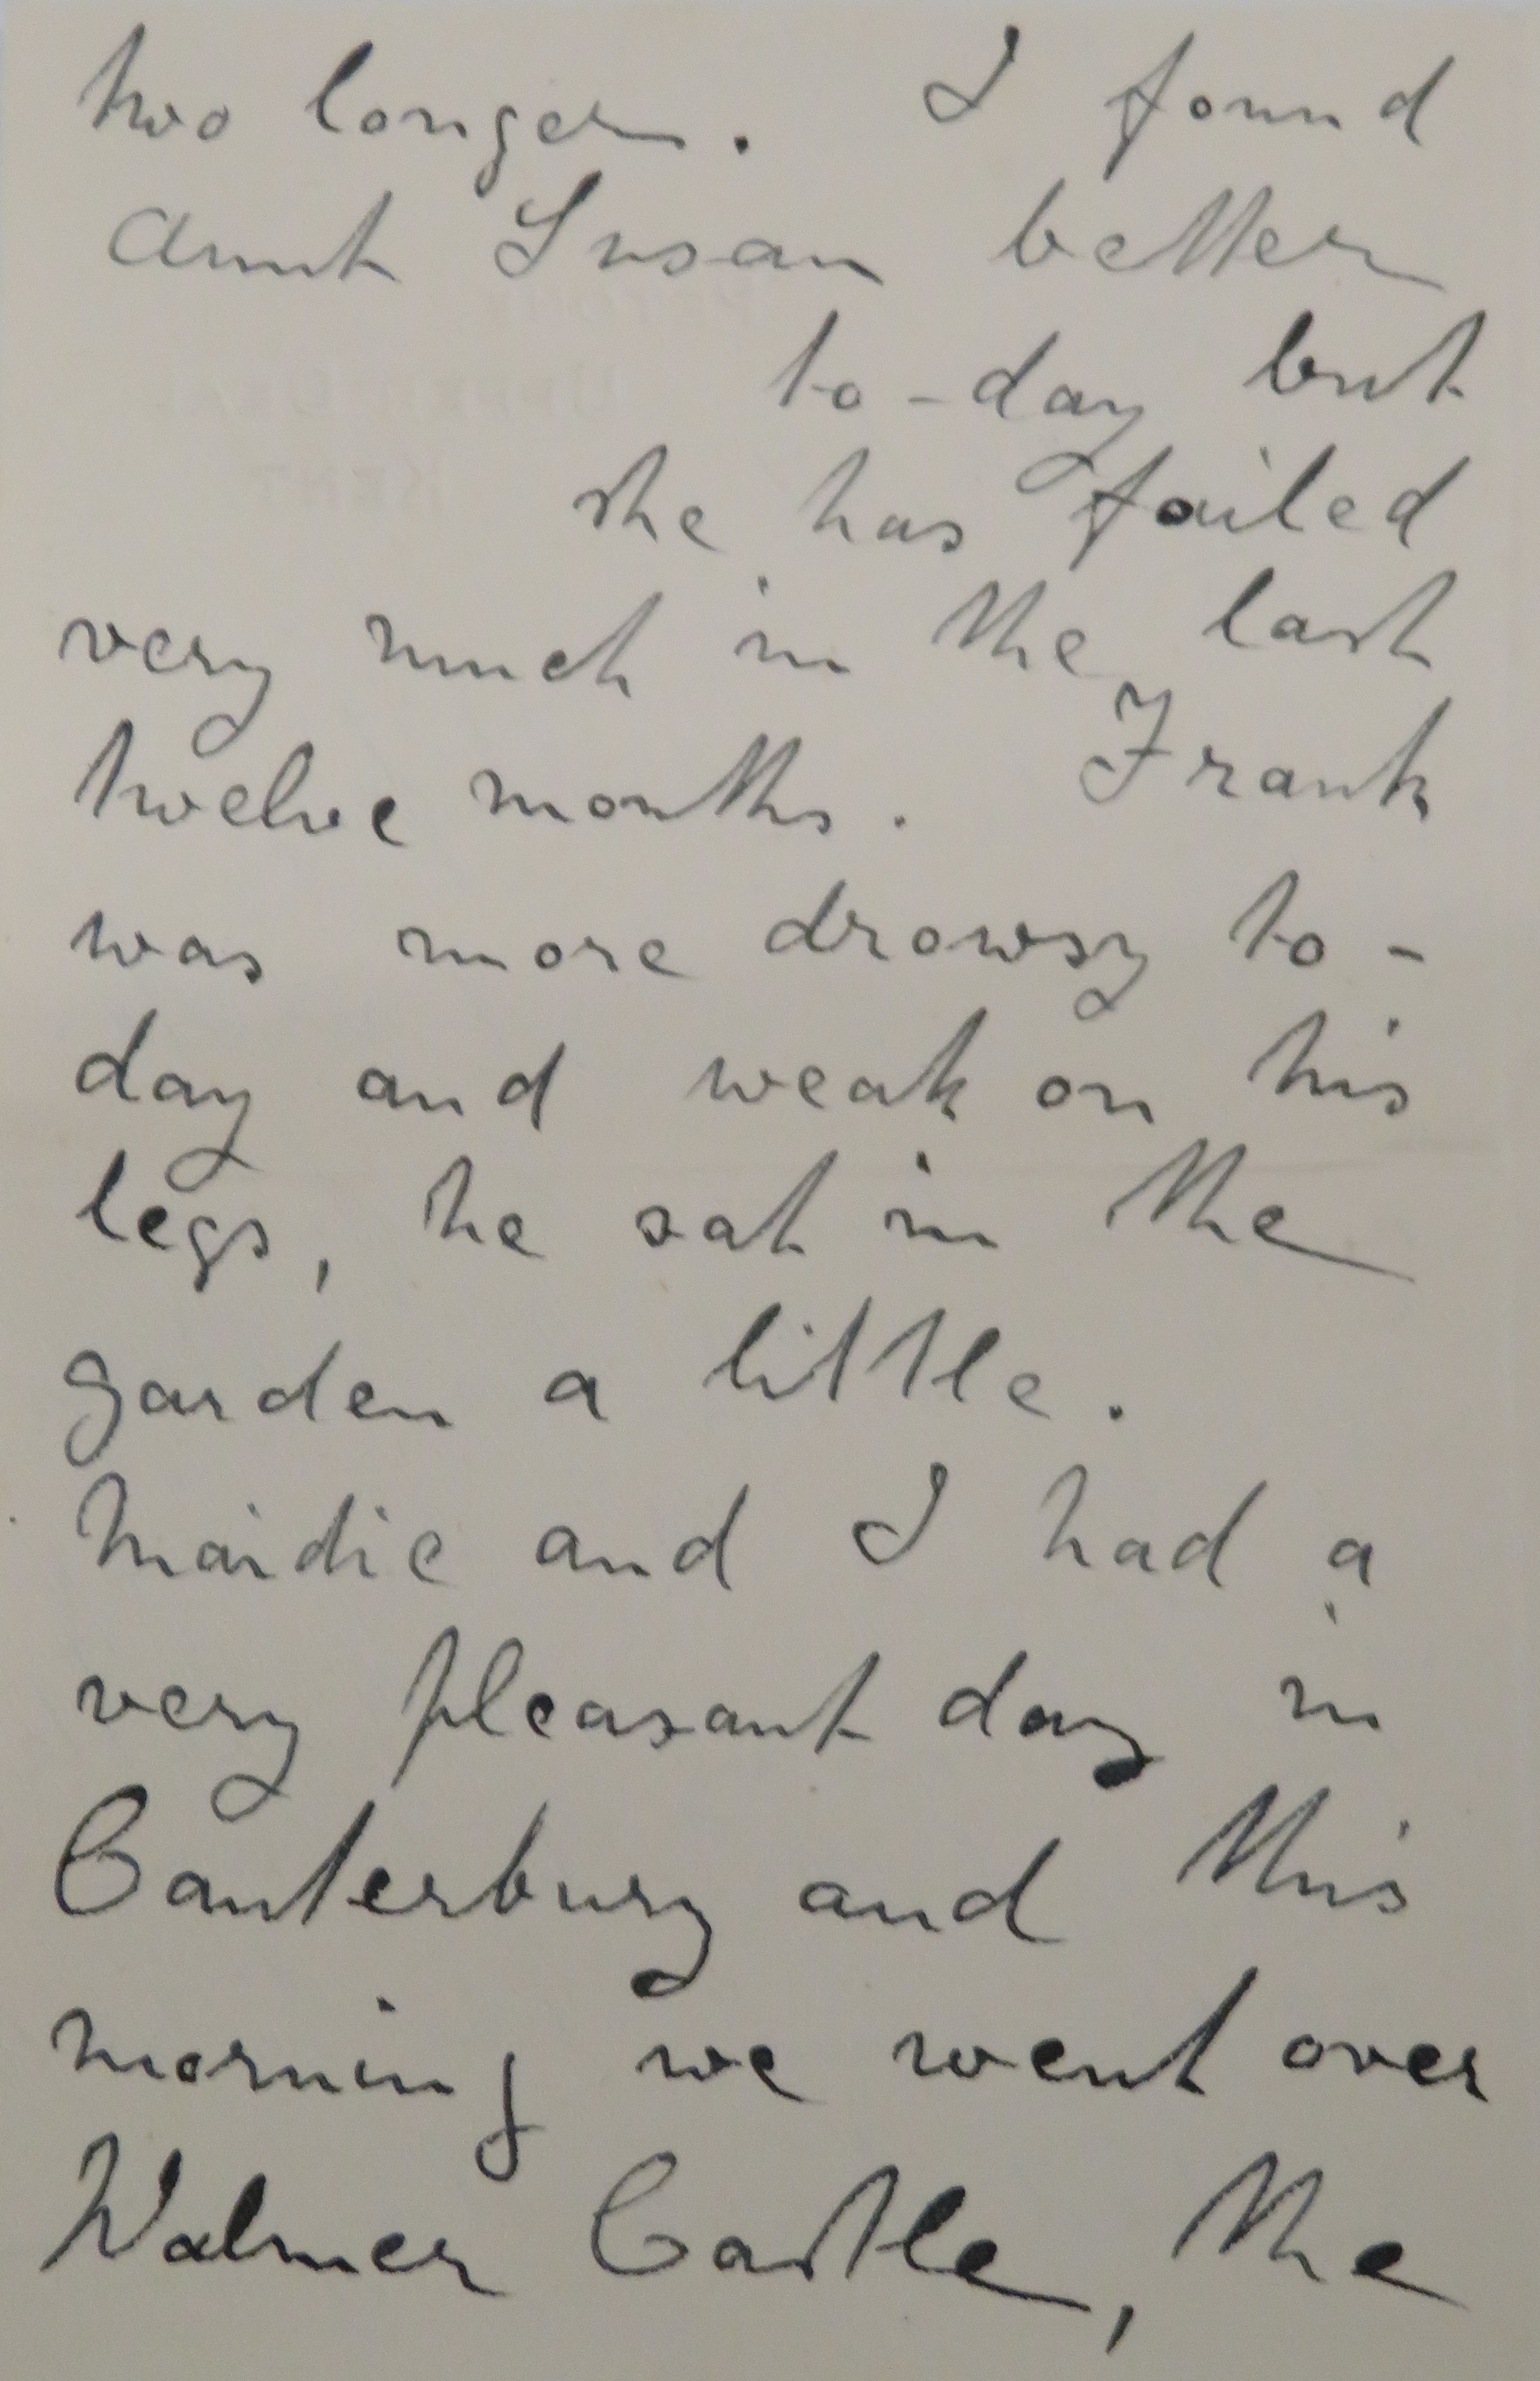 two longer. I found
Aunt Susan better
to-day but
she has failed
very much in the last
twelve months. Frank
was more drowsy to-
day and weak on his
legs, he sat in the
garden a little.
Maidie and I had a
very pleasant day in
Canterbury and this
morning we went over
Walmer Castle, the